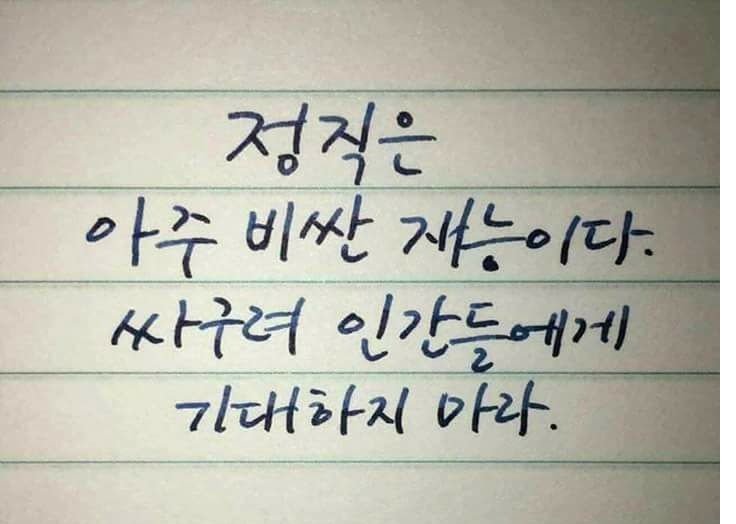 정직은
아주 비싼 재능이다.
싸구려 인간들에게
기대하지 마라.